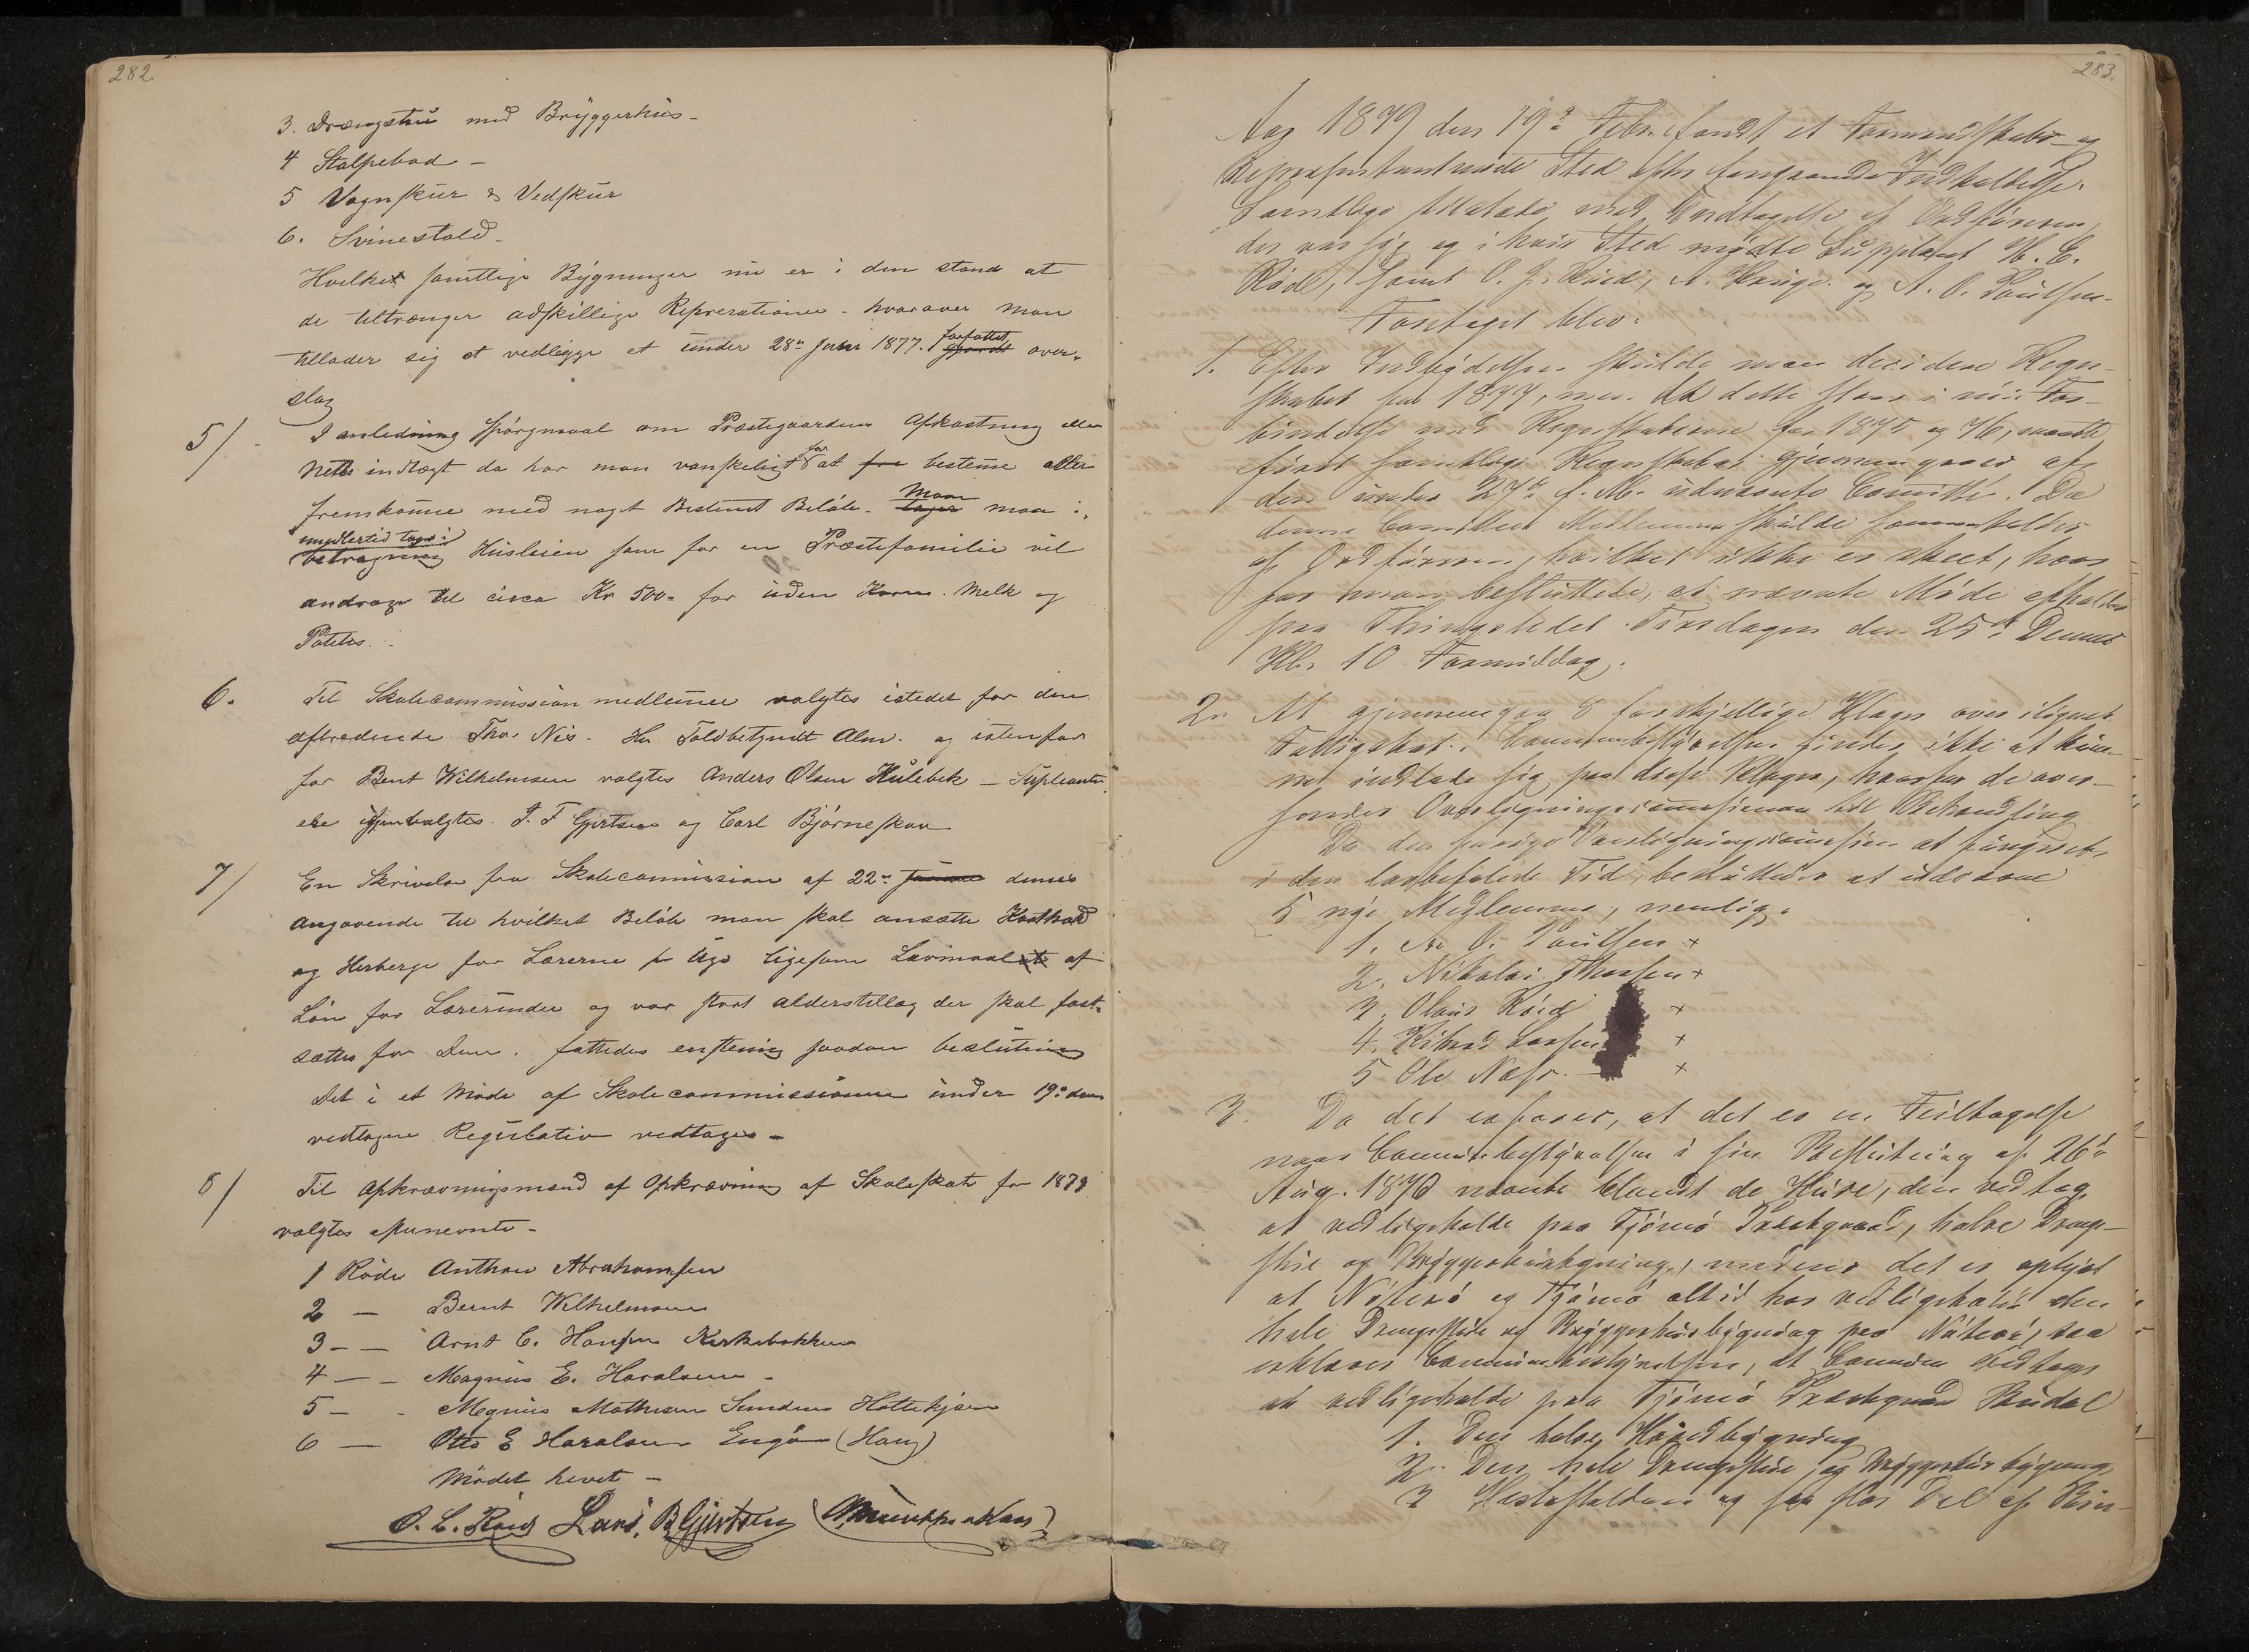 282.
3. Drængestue med Bryggerhus -
4 Stolpebod -
5 Vognskur & Vedskur
6. Svinestald -
Hvilket samtlige Bygninger nu er i den stand at
de tiltrænger adskillige Reprerationer - hvorover man
tillader sig at vedlægge et under 28de Juni 1877. forfattet over-
slag
5/. I anledning spörgmaal om Præstegaardens Afkastning eller
Netto indtægt da har man vanskeligt for at besteme eller
fremkomme med noget Bestemt Belöb. Maa man i-
imidlertid tages i Husleien som for en Præstefamilie vil
andrage til circa Kr 500 = for uden Korn. Melk og
Potetes.
6. Til Skolecommission medlemer valgtes istedet for den
aftredende Tho. Nis. Hr Toldbetjendt Alm. og istenfor
for Bent Wilhelmsen valgtes Anders Olsen Hulebek - Supleanter
ere igjenvalgtes. J. F Gjertsen og Carl Björneskov
7/ En Skrivelse fra Skolecommission af 22de dennes
angaaende til hvilket Belöb man skal ansætte Kosthold
og Herberge for Lærerne pr Uge ligesom Lavmaal af
Lön for Lærerinder og vor stort alderstillæg der skal fast-
sættes for Dem. fattedes enstemig saadan beslutning
Det i et Möde af Skolecommissionen under 19de dens
vedtagne Regulativ vedtages -
8/ Til Opkrævningsmænd af Opkrævning af Skoleskat for 1879
valgtes
1 Rode Anthon Abrahamsen
2 — Bernt Wilhelmsen
3 - — Arnt C. Hansen Kirkebakken
4 — - Magnus E. Haralsen -
5 — - Magnus Mathisen Sundene
6 — Otto E Haralsen Engö (Haug)
Mödet hevet -
O. L. Röed Lars. B Gjertsen
283.
Aar 1879 den 19de Febr. fandt et Formandskabs- og
Repræsentantmöde Sted efter foregaaende Indkaldelse.
Samtlige tilstede, med Undtagelse af Ordföreren,
der var syg og i hvis Sted mödte Suppleant H. C.
Röed, samt O. J. Röed, A. Hauge og A. O. Poulsen.
Foretaget blev:
1. Efter Indbydelsen skulde man decidere Regn-
skabet for 1877, men da dette staar i nöie For-
bindelse med Regnskaberne for 1875 og 76, maatte
först samtlige Regnskaber gjennemgaaes af
den under 27de f. M. udnævnte Comitte. Da
denne Comittees Medlemmer skulde sammenkaldes
af Ordföreren, hvilket ikke er skeet, hvor-
for man besluttede, at nævnte Möde afholdes
paa Thingstedet Tirsdagen den 25de Dennes
Kl. 10 Formiddag.
2. At gjennemgaa 8 forskjellige Klager over ilignet
Fattigskat. Communebestyrelsen finder ikke at kun-
ne indlade sig paa disse Klager, hvorfor de over-
sendes Overligningscommissionen til Behandling
Da den forrige Overligningscommission at fungeret
i den lovbefalede Tid, besluttedes at udnævne
5 nye Medlemmer, nemlig:
1. A. O. Poulsen +
2. Nikolai Thorsen +
3. Olaus Röed +
4. Rikard Larsen +
5 Ole Næss. — +
3. Da det erfares, at det er en Feiltagelse
naar Communebestyrelsen i sin Beslutning af 26de
Aug. 1876 nævnte blandt de Huse, den vedtog
at vedligeholde paa Tjömö Præstegaard, halve Dreng-
stue og Bryggerhusbygning, medens det er oplyst
at Nöterö og Tjömö altid har vedligeholdt den
hele Drengstue og Bryggerhusbygning paa Nöterö, saa
erklærer Communebestyrelsen, at Communen vedtager
at vedligeholde paa Tjömö Præstegaard Rindal
1. Den halve Hovedbygning
2. Den hele Drengestue og Bryggerhusbygning
3 Hestestalden og saa stor Del af